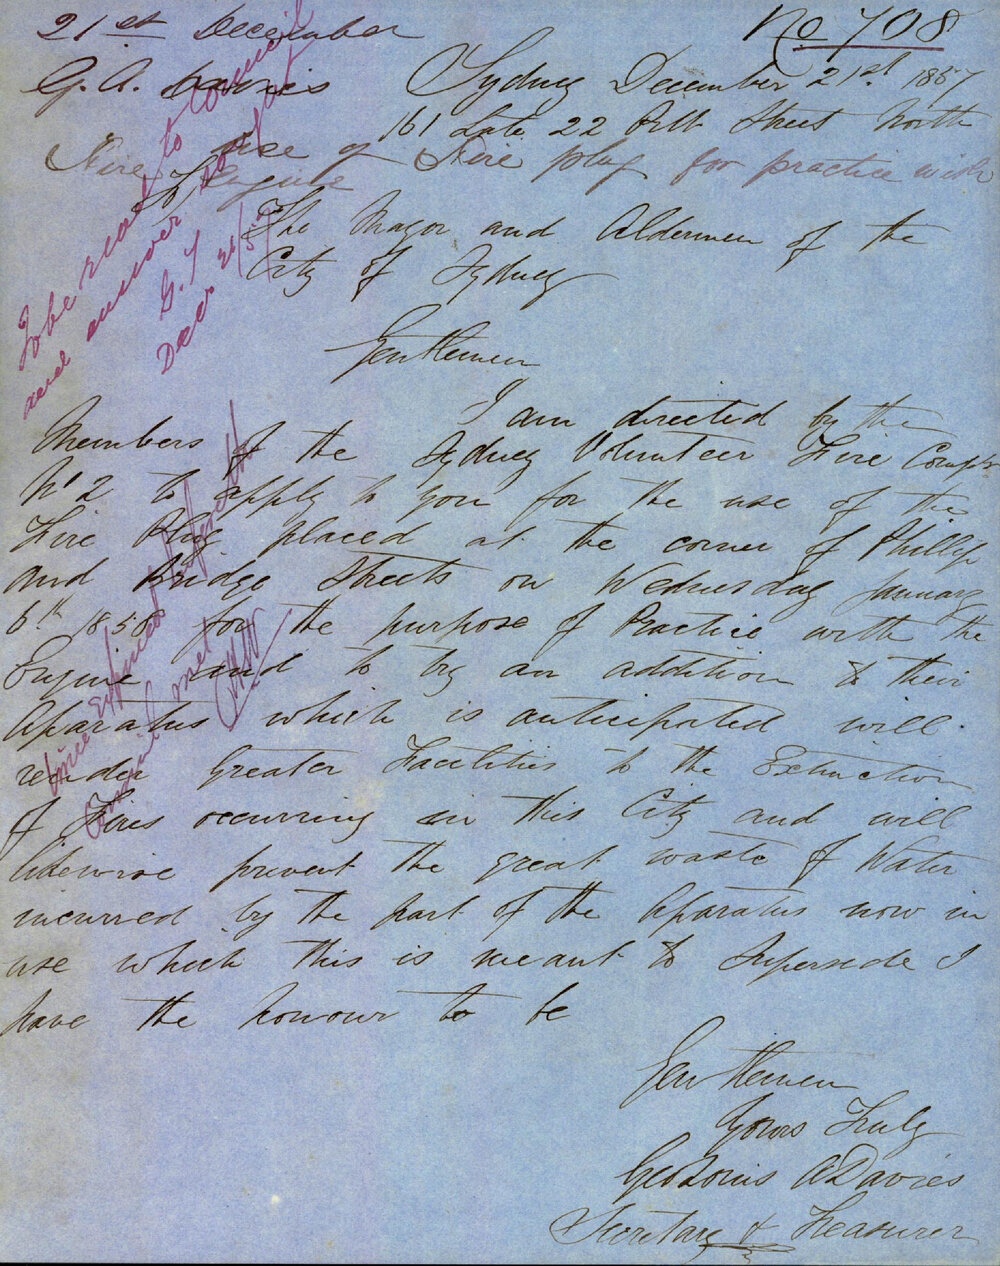 21st December
No 708
G. A. Davies
Sydney December 21st. 1857
161 Late 22 Pitt Street North
Fire use of Fire plug for practice with
Engine
To
The Mayor and Aldermen of the
City of Sydney
Gentlemen
I am directed by the
Members of the Sydney Volunteer Fire Compy
No 2 to apply to you for the use of the
Fire Plug placed at the corner of Phillip
and Bridge Streets on Wednesday January
6th 1858 for the purpose of Practice with the
Engine and to try an addition to their
Aparatus which is anticipated will
render Greater Facilities to the Extinction
of Fires occurring in this City and will
likewise prevent the great waste of Water
incurred by the part of the Aparatus now in
use which this is meant to Supersede I
have the honour to be
Gentlemen
Yours Truly
Geo Louis A Davies
Secretary & Treasurer
To be read to Council
and answer
G. T
Decr 21/57
time expired before the
Council met